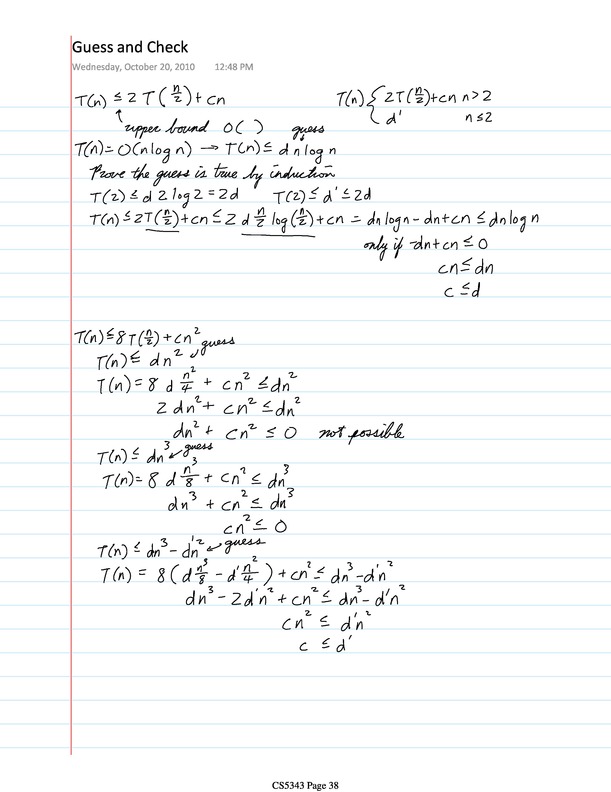 Guess and Check
Wednesday, October 20, 2010 12:48 PM
T(n) ≤ 2 T(n/2) + cn T(n) { 2T(n/2)+cn n>2
d' n≤2
↑ upper bound O( ) guess
T(n)=O(n log n) → T(n) ≤ d n log n
Prove the guess is true by induction
T(2) ≤ d 2 log 2 = 2d T(2) ≤ d' ≤ 2d
T(n) ≤ 2T(n/2)+cn ≤ 2 d n/2 log(n/2) + cn = dn log n - dn + cn ≤ dn log n
only if -dn + cn ≤ 0
cn ≤ dn
c ≤ d
T(n) ≤ 8T(n/2) + cn² guess
T(n) ≤ dn² ↙
T(n) = 8 d n²/4 + cn² ≤ dn²
2dn² + cn² ≤ dn²
dn² + cn² ≤ 0 not possible
T(n) ≤ dn³ ↙ guess
T(n) = 8 d n³/8 + cn² ≤ dn³
dn³ + cn² ≤ dn³
cn² ≤ 0
T(n) ≤ dn³ - d'n² ↙ guess
T(n) = 8(d n³/8 - d' n²/4) + cn² ≤ dn³ - d'n²
dn³ - 2d'n² + cn² ≤ dn³ - d'n²
cn² ≤ d'n²
c ≤ d'
CS5343 Page 38